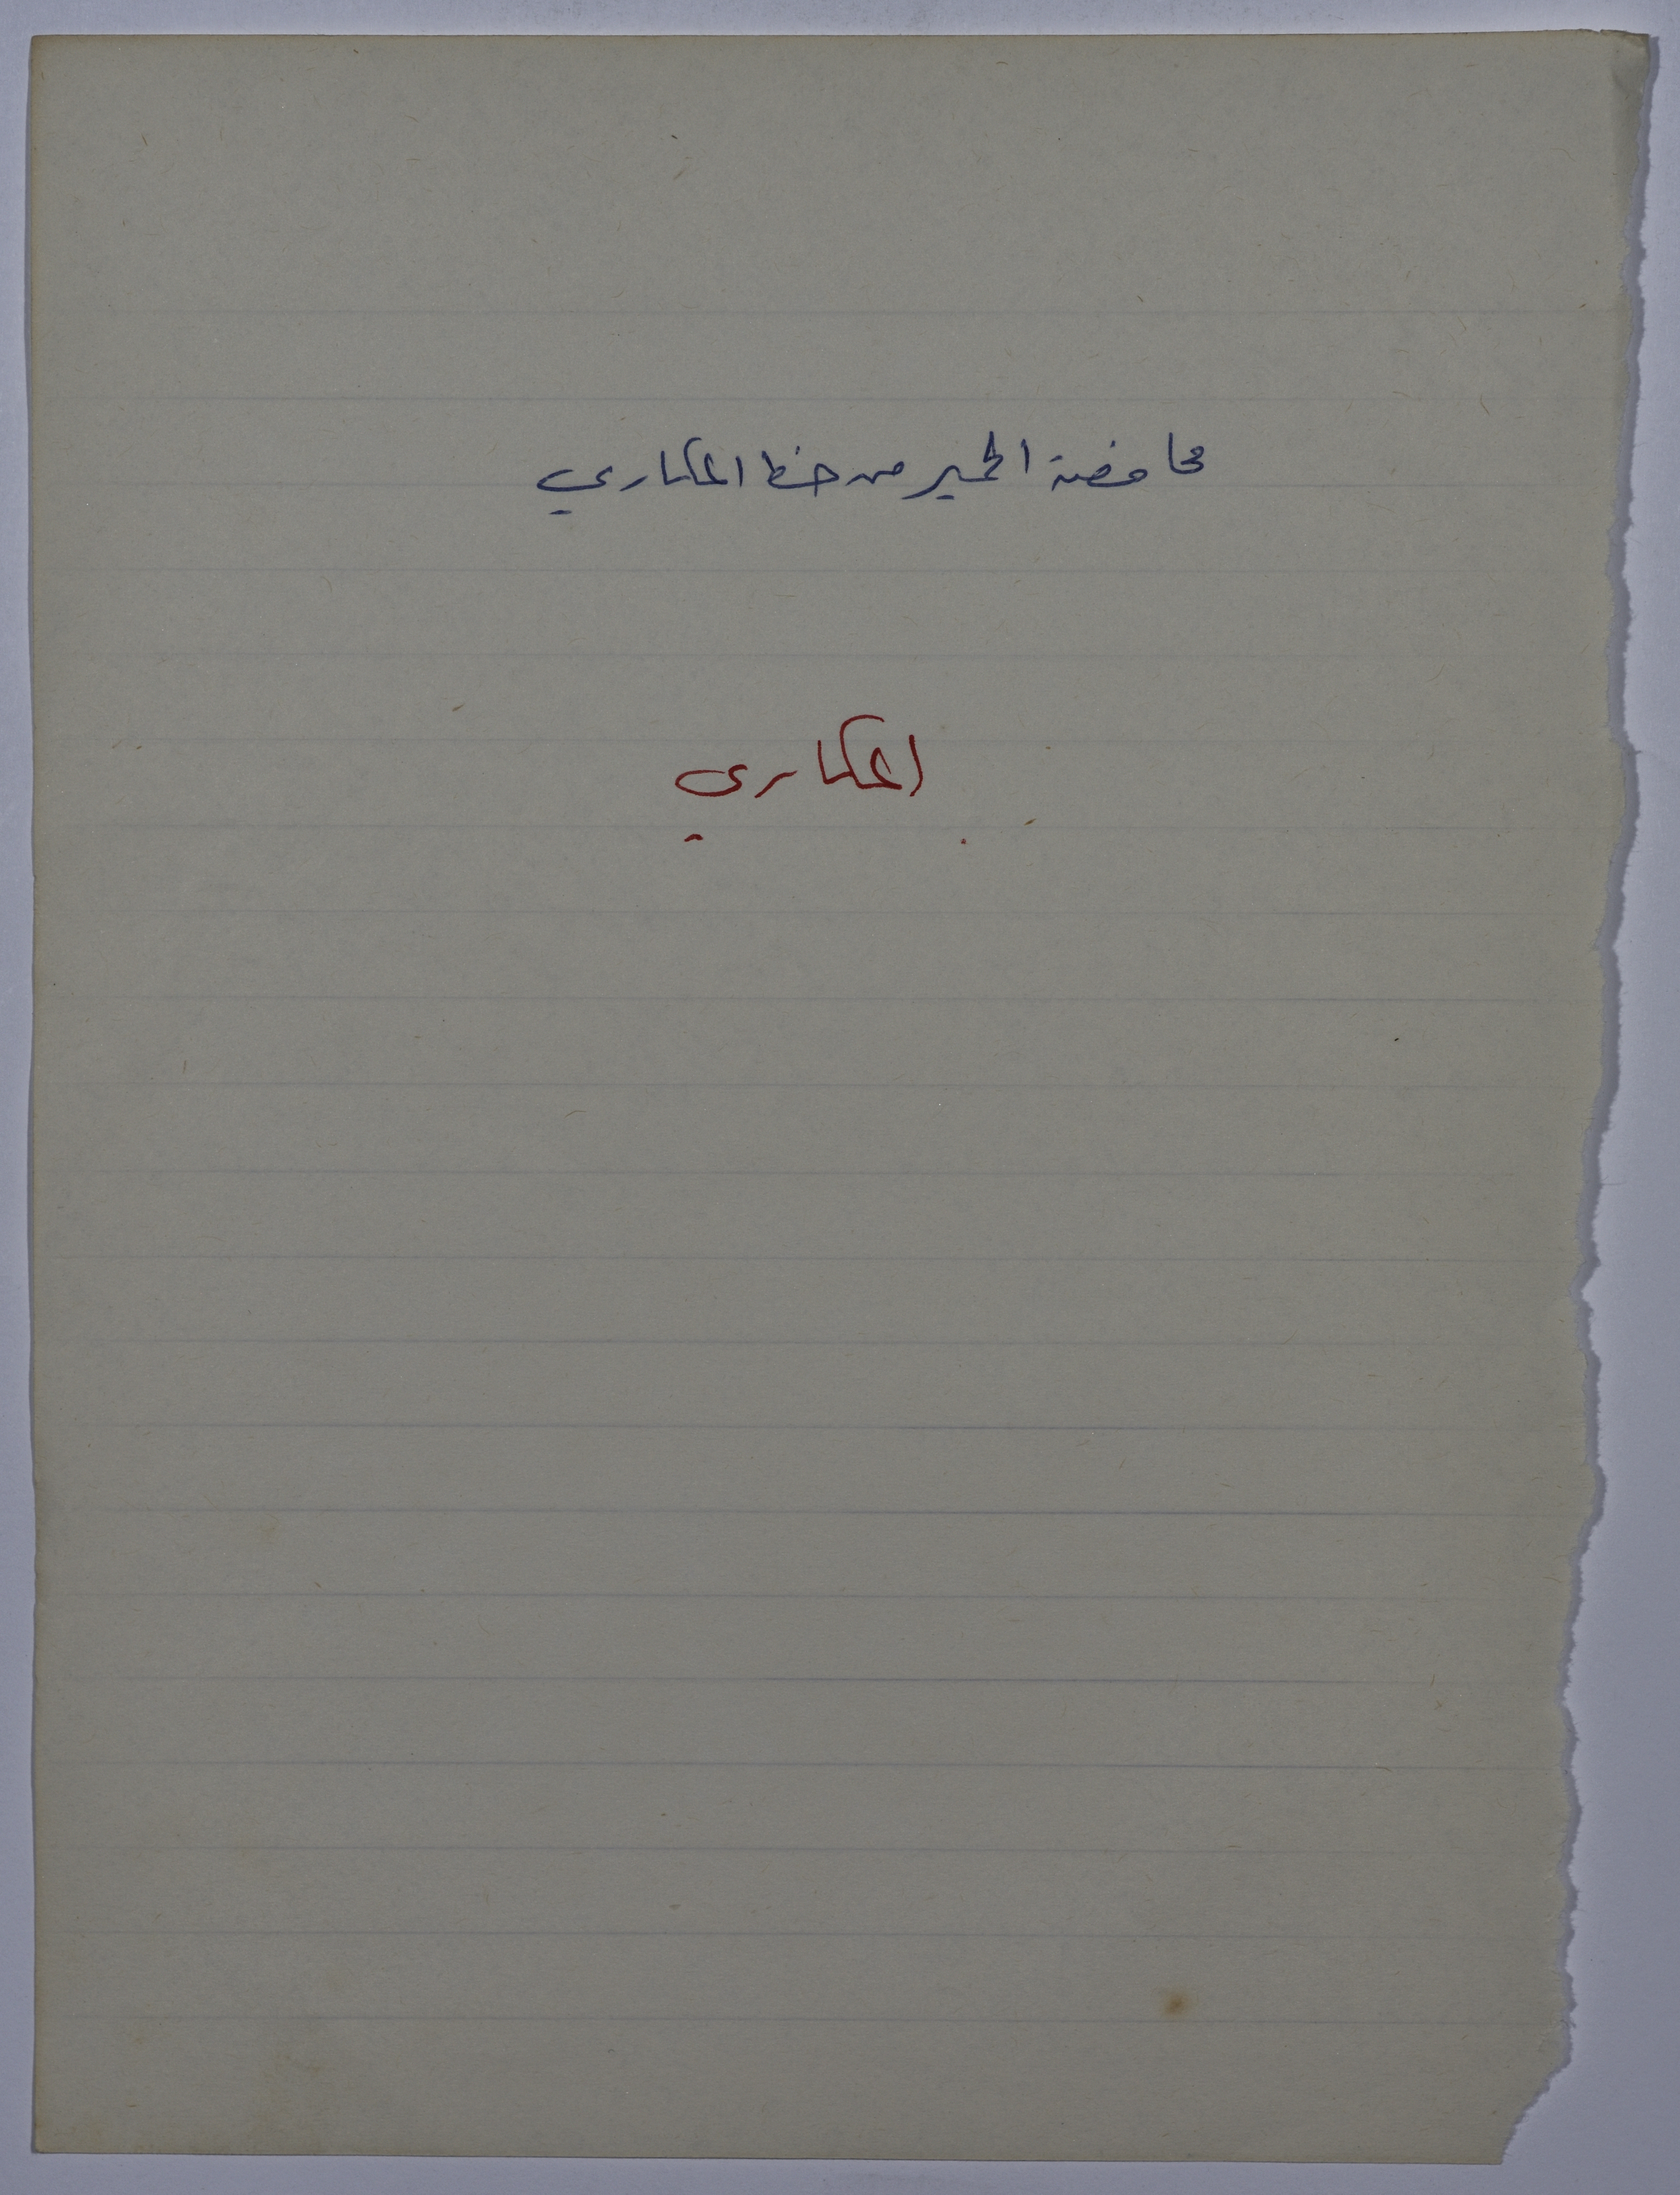 محافضة الحمير من حظ المكاري
المكاري